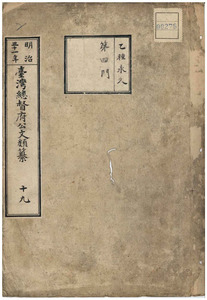 乙種永久
第四門
明治
卅一年
臺灣總督府公文類纂
十九